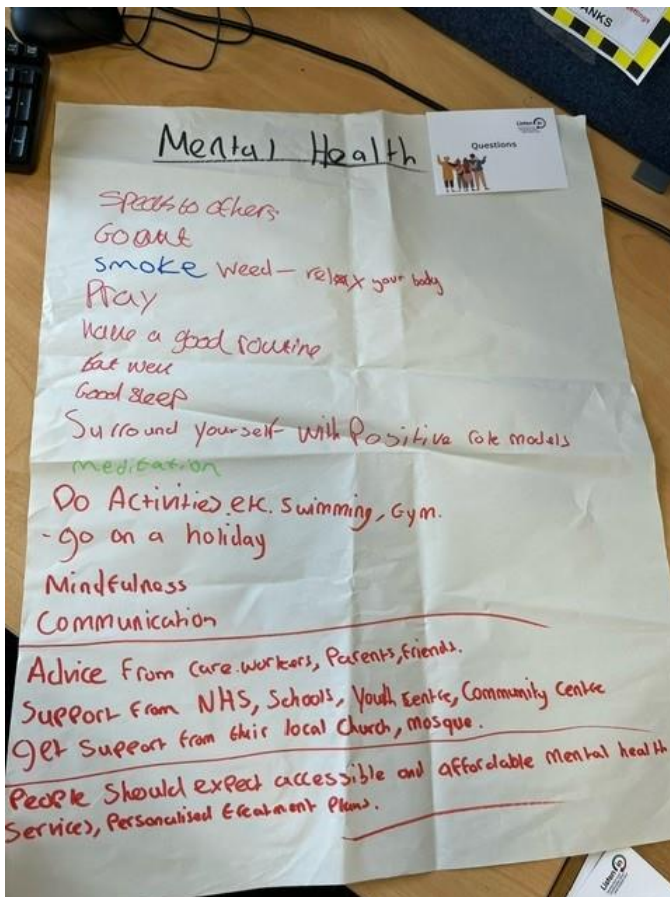 ANKS
Mental Health
Listen
Questions
Speak to others
Go out
smoke weed - relax your body
Pray
have a good routine
Eat well
Good sleep
Surround yourself with Positive role models
meditation
Do Activities. etc. Swimming, Gym.
- go on a holiday
Mindfulness
Communication
Advice from care workers, Parents, friends.
Support from NHS, Schools, Youth Centre, Community Centre
get Support from their local Church, mosque.
People Should expect accessible and affordable mental health
Services, Personalised treatment Plans.
Listen